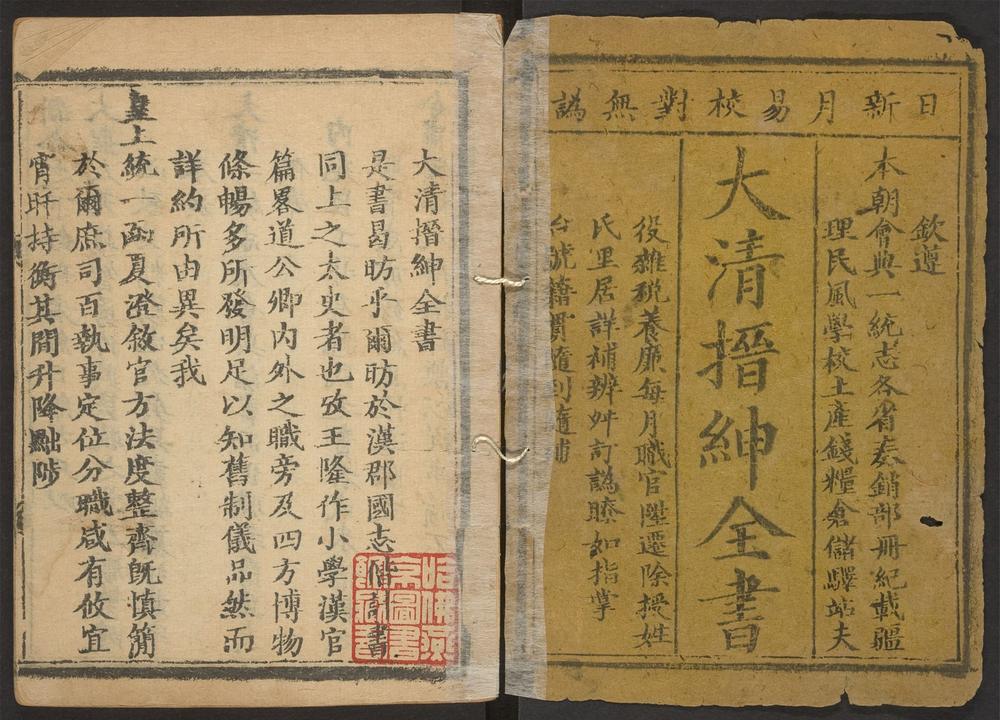 日新月易校對無譌
欽遵
本朝會典一統志各省奏銷部冊紀載疆
理民風學校土產錢糧倉儲驛站夫
大清搢紳全書
役雜稅養廉每月職官陞遷除授姓
氏里居詳補辨舛訂譌瞭如指掌
台號籍貫隨到隨補
大清搢紳全書
是書曷昉乎爾昉於漢郡國志偕計書
同上之太史者也攷王隆作小學漢官
篇畧道公卿內外之職旁及四方博物
條暢多所發明足以知舊制儀品然而
詳約所由異矣我
皇上統一函夏澄敘官方法度整齊旣慎簡
於爾庶司百執事定位分職咸有攸宜
宵旰持衡其間升降黜陟
哈佛燕
京圖書
館藏書